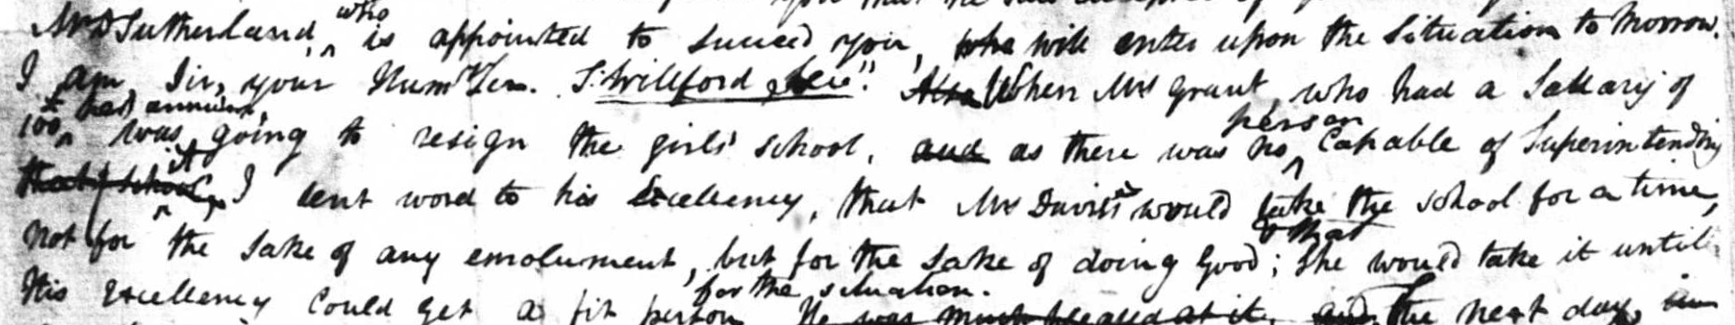 Mr D Sutherland, who is appointed to succeed you, who will enter upon the Situation to Morrow.
I am, Sir, your Humle Ser. T. Willford Sec." Also When Mrs Grant, who had a Sallary of
100 £ per annum, was going to resign the girls' school, and as there was no person Capable of Superintending
that school it, I sent word to his Excellency, that Mrs Davis would take the school for a time,
not for the sake of any emolument, but for the sake of doing good; & that she would take it until
His Excellency could get a fit person for the situation. He was much pleased at it, and The next day, in